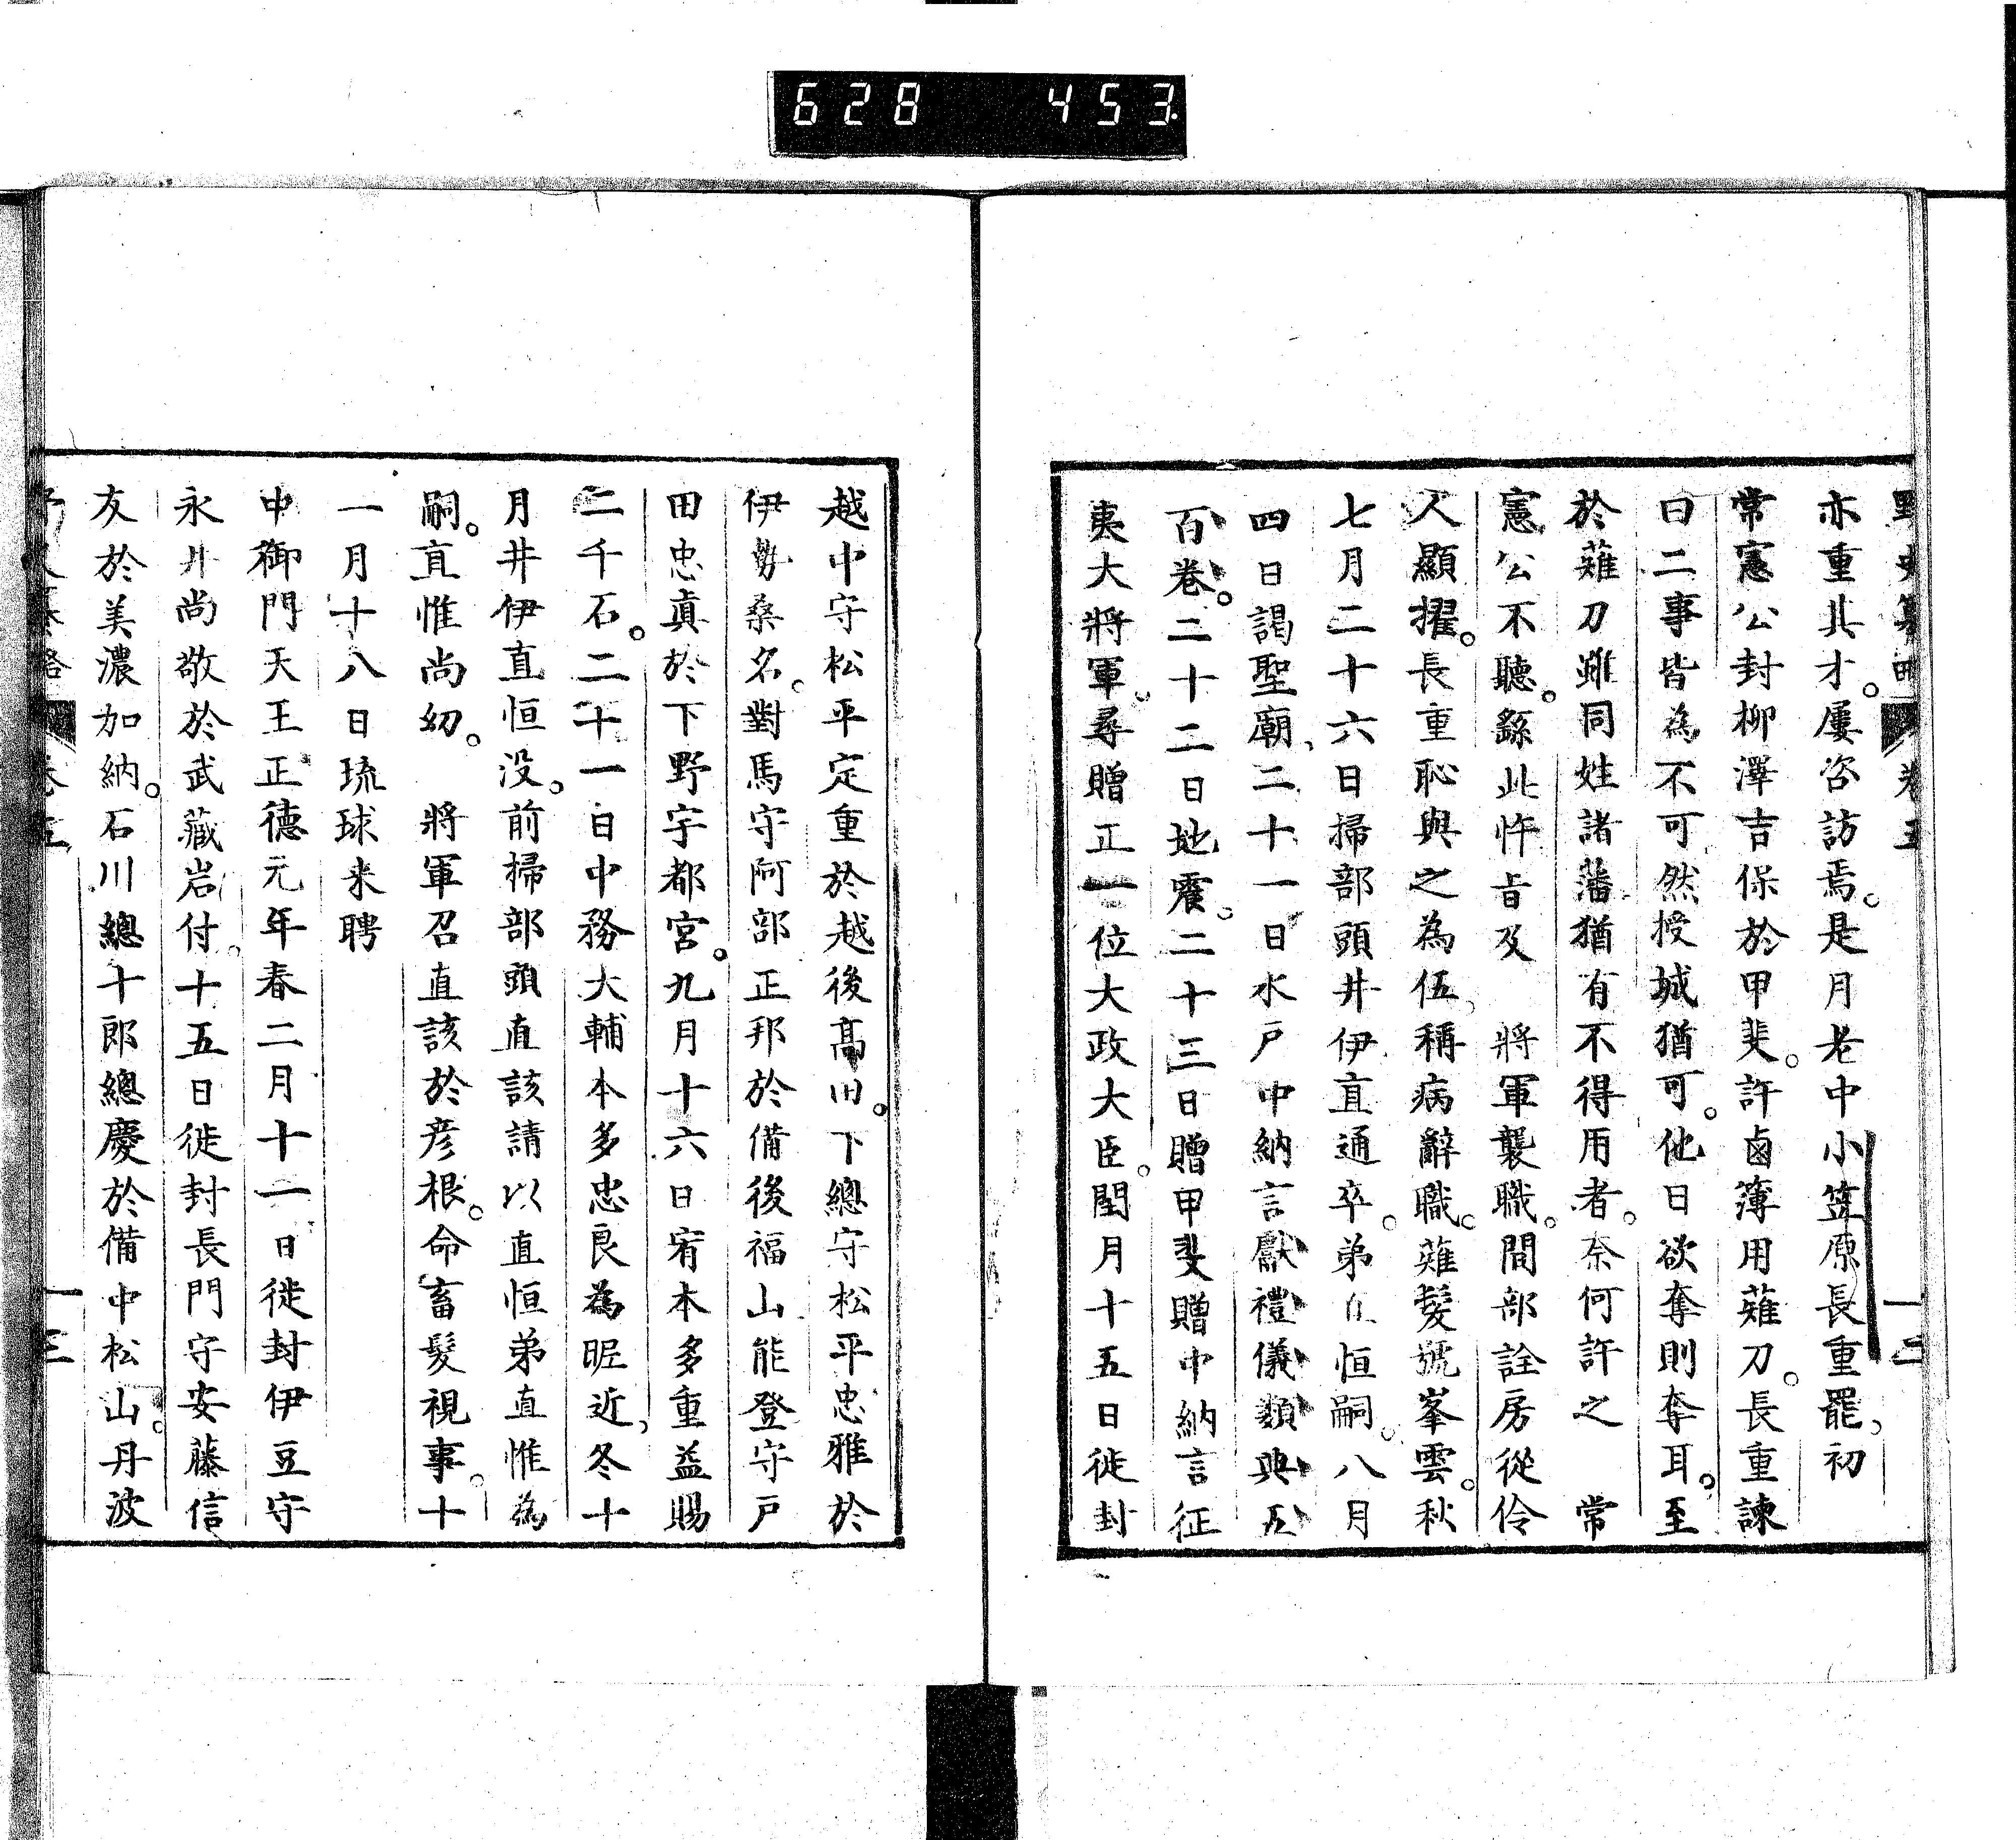 628 453
野史纂略 卷五 十三
亦重其才。屢咨訪焉。是月老中小笠原長重罷、初
常憲公封柳澤吉保於甲斐。許鹵簿用薙刀。長重諫
曰二事皆為不可然授城猶可。他日欲奪則奪耳。至
於薙刀雖同姓諸藩猶有不得用者。奈何許之 常
憲公不聽。繇此忤旨及 將軍襲職。間部詮房從伶
人顯擢。長重恥與之為伍、稱病辭職。薙髮號峯雲。秋
七月二十六日掃部頭井伊直通卒。弟直恒嗣。八月
四日謁聖廟、二十一日水戶中納言獻禮儀類典五
百卷。二十二日地震。二十三日贈甲斐贈中納言征
夷大將軍。尋贈正一位大政大臣。閏月十五日徙封
越中守松平定重於越後高田。下總守松平忠雅於
伊勢桑名。對馬守阿部正邦於備後福山能登守戶
田忠眞於下野宇都宮。九月十六日宥本多重益賜
二千石。二十一日中務大輔本多忠良為昵近、冬十
月井伊直恒没。前掃部頭直該請以直恒弟直惟為
嗣。直惟尚幼。 將軍召直該於彦根。命畜髮視事。十
一月十八日琉球来聘
中御門天王正德元年春二月十一日徙封伊豆守
永井尚敬於武藏岩付。十五日徙封長門守安藤信
友於美濃加納。石川總十郎總慶於備中松山。丹波
野史纂略 卷五 十三